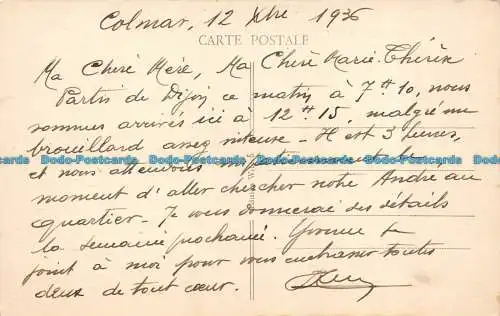 Colmar, 12 Xbre 1936
CARTE POSTALE
Ma Cheré Méré, Ma Cheré Marie-Thérèse
Partis de Dijon ce matin à 7 H 10, nous
sommes arrivés ici à 12 H 15, malgré un
brouillard assez intense - Il est 3 heures,
Dodo-Postcards Dodo-Postcards Dodo-Postcards Dodo-Postcards
et nous attendons le
moment d'aller chercher notre André au
quartier - Je vous donnerai des détails
la semaine prochaine. Yvonne se
joint à moi pour vous embrasser toutes
deux de tout cœur.